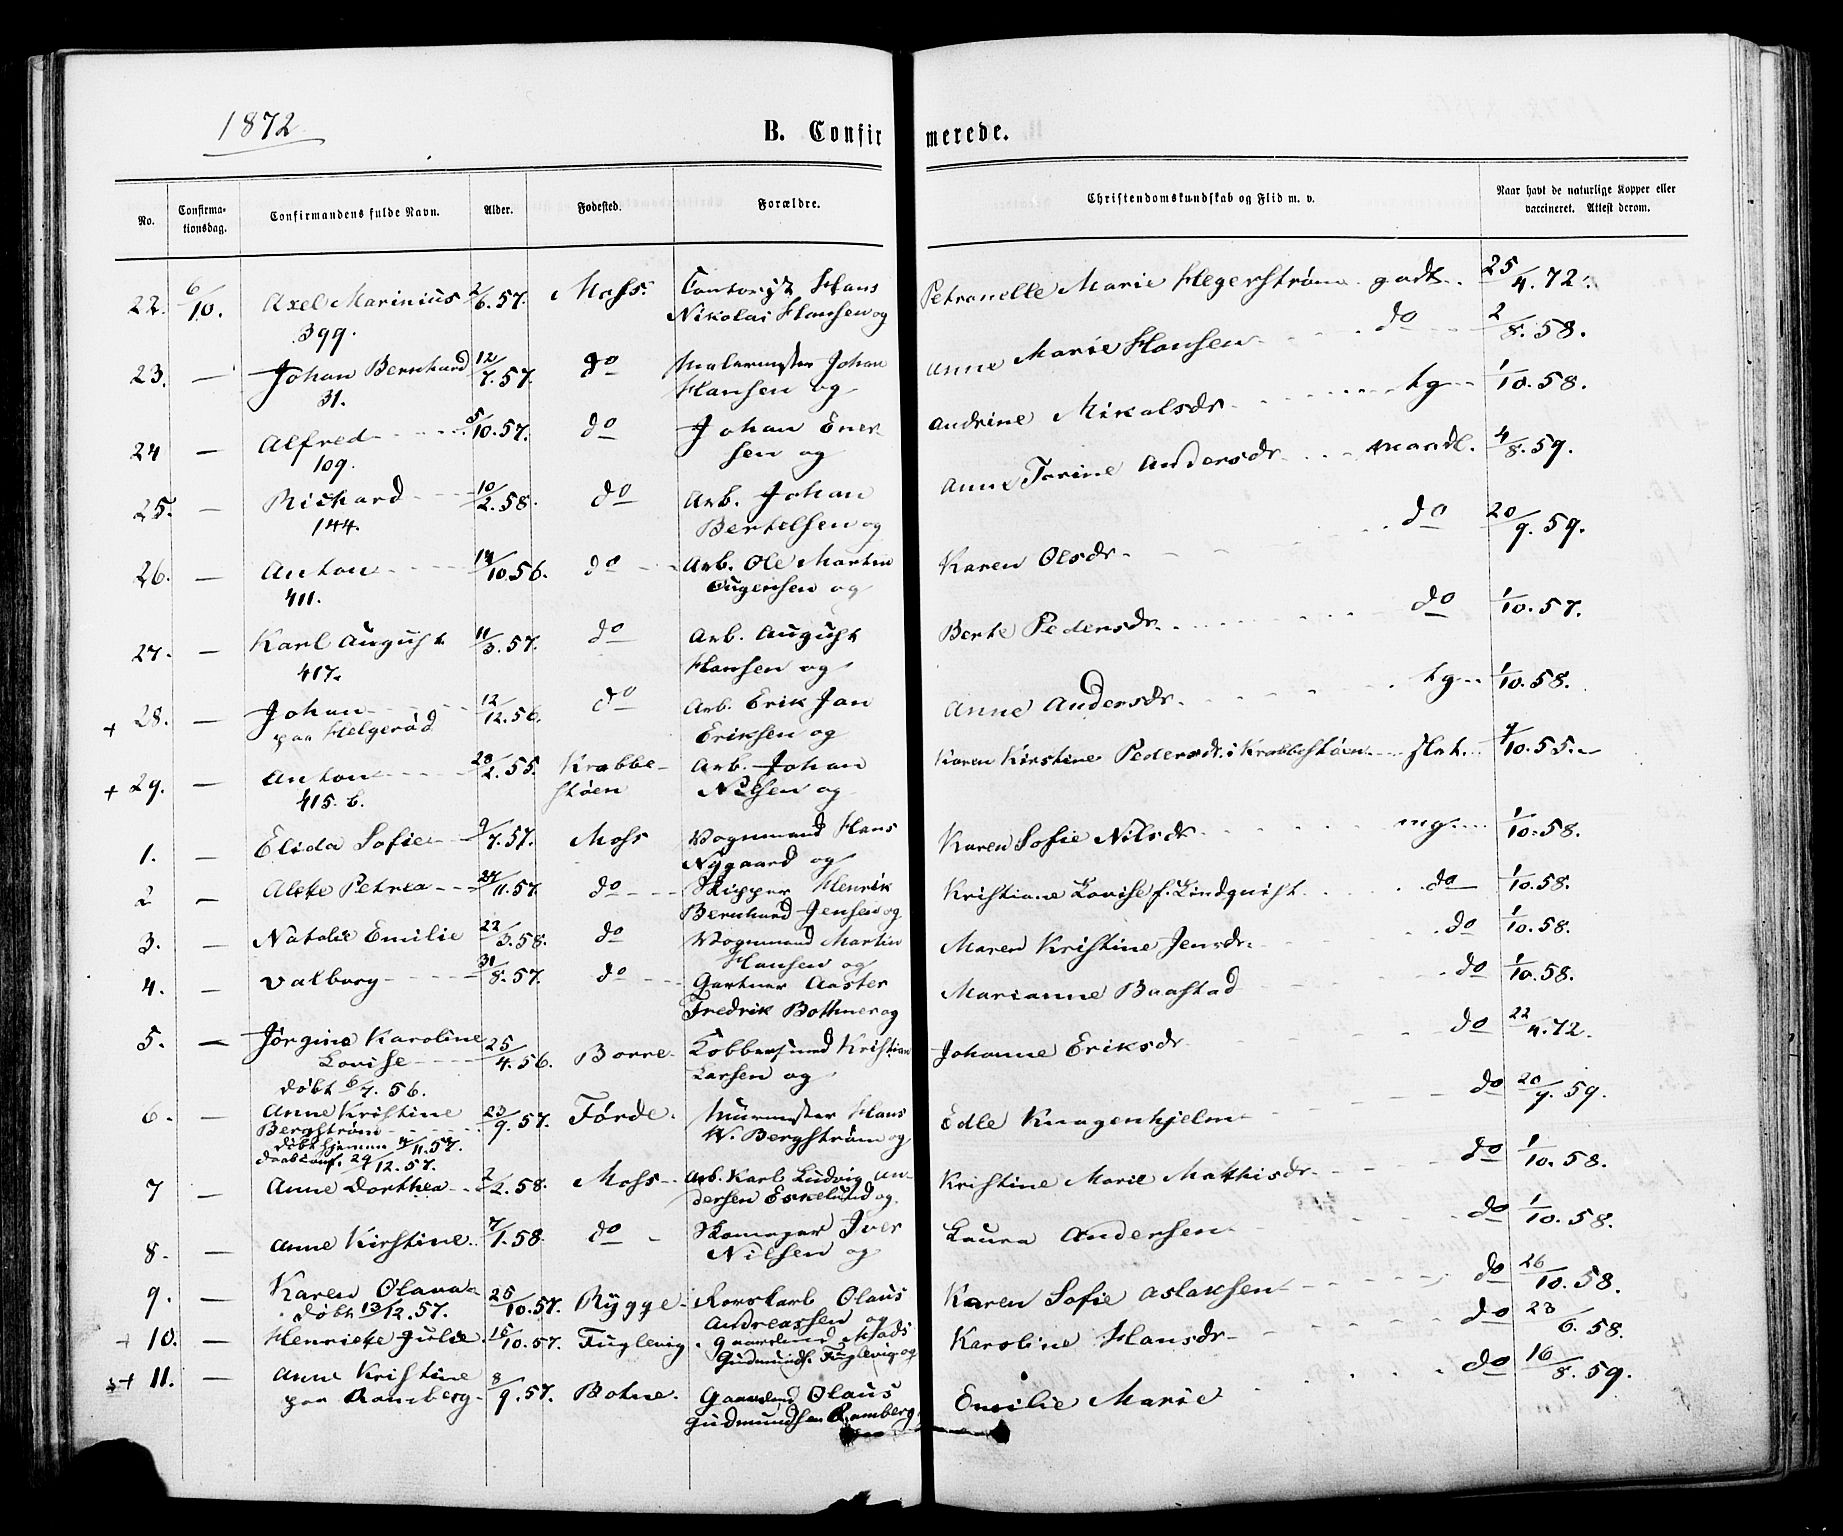 1872
B. Confirmerede.
No. Confirmationsdag. Confirmandens fulde Navn. Alder. Fødested. Forældre. Christendomskundskab og Flid m. v. Naar havt de naturlige Kopper eller vaccineret. Attest derom.
22. 6/10. Axel Marinius 2/6.57. Moss. Contorist Hans Petronelle Marie Hegerstrøm godt. 25/4.72.
399. Nikolai Hansen og
23. — Johan Bernhard 12/7.57. do Malermester Johan Anne Marie Hansen do 2/8.58.
31. Hansen og
24 — Alfred 5/10.57. do Johan Ener- Andrine Mikalsdr. tg 1/10.58.
109. sen og
25. — Richard 10/2.58. do Arb. Johan Anne Torine Andersdr. maadl. 4/8.59.
144. Bertelsen og
26. — Anton 14/10.56. do Arb. Ole Martin Karen Olsdr. do 20/9.59.
411. og
27. — Karl August 11/3.57. do Arb. August Berte Pedersdr. do 1/10.57.
417. Hansen og
+ 28. — Johan 12/12.56. do Arb. Erik Jan Anne Andersdr. tg 1/10.58.
paa Helgerød Eriksen og
+ 29. — Anton 28/2.55. Krabbe- Arb. Johan Karen Kirstine Pedersdr. i Krabbestøen slet. /10.55.
415. b. støen Nilsen og
1. — Elida Sofie 9/7.57. Moss Vognmand Hans Karen Sofie Nilsdr. mg. 1/10.58.
Nygaard og
2 — Alette Petrea 27/11.57. do Skipper Henrik Kristiane Lovise f. Lindquist. do 1/10.58.
Bernhard Jensen og
3. — Natalie Emilie 22/3.58. do Vognmand Martin Maren Kristine Jensdr. do 1/10.58.
Hansen og
4. — Valborg 31/8.57. do Gartner Aaster Marianne Baastad do 1/10.58.
Fredrik Bothner og
5. — Jørgine Karoline 25/4.56. Borre Kobbersmed Kristian Johanne Eriksdr do 22/4.72.
Lovise Larsen og
døbt 6/7.56.
6. — Anne Kristine 23/9.57. Førde. Murmester Hans Edle Knagenhjelm do 20/9.59.
Bergstrøm W. Bergstrøm og
døbt hjemme /11.57.
daab conf. 29/12.57.
7 — Anne Dorthea 2/2.58. Moss Arb. Karl Ludvig An- Kristine Marie Mathisdr. do 1/10.58.
dersen Eskelund og
8. — Anne Kirstine 7/1.58. do Skomager Iver Laura Andersen do 1/10.58.
Nilsen og
9. — Karen Olava 25/10.57. Rygge Rorskarl Olaus Karen Sofie Aslaksen do 26/10.58.
døbt 13/12.57. Andreassen og
+ 10. — Henriette Julie. 15/10.57. Fuglevig. Gaardmd Mads Karoline Hansdr. do 23/6.58.
Gudmunds. Fuglevig og
+ 11. — Anne Kristine 8/9.57. Botne. Gaardmd Olaus Emilie Marie do 16/8.59.
paa Ramberg Gudmundsen Ramberg